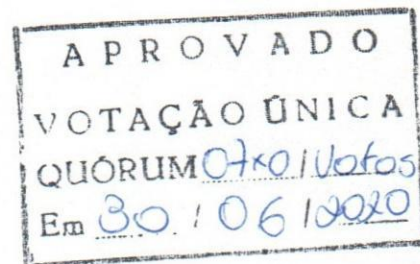 APROVADO
VOTAÇÃO ÚNICA
QUÓRUM 07x01 Votos
Em 30 / 06 / 2020